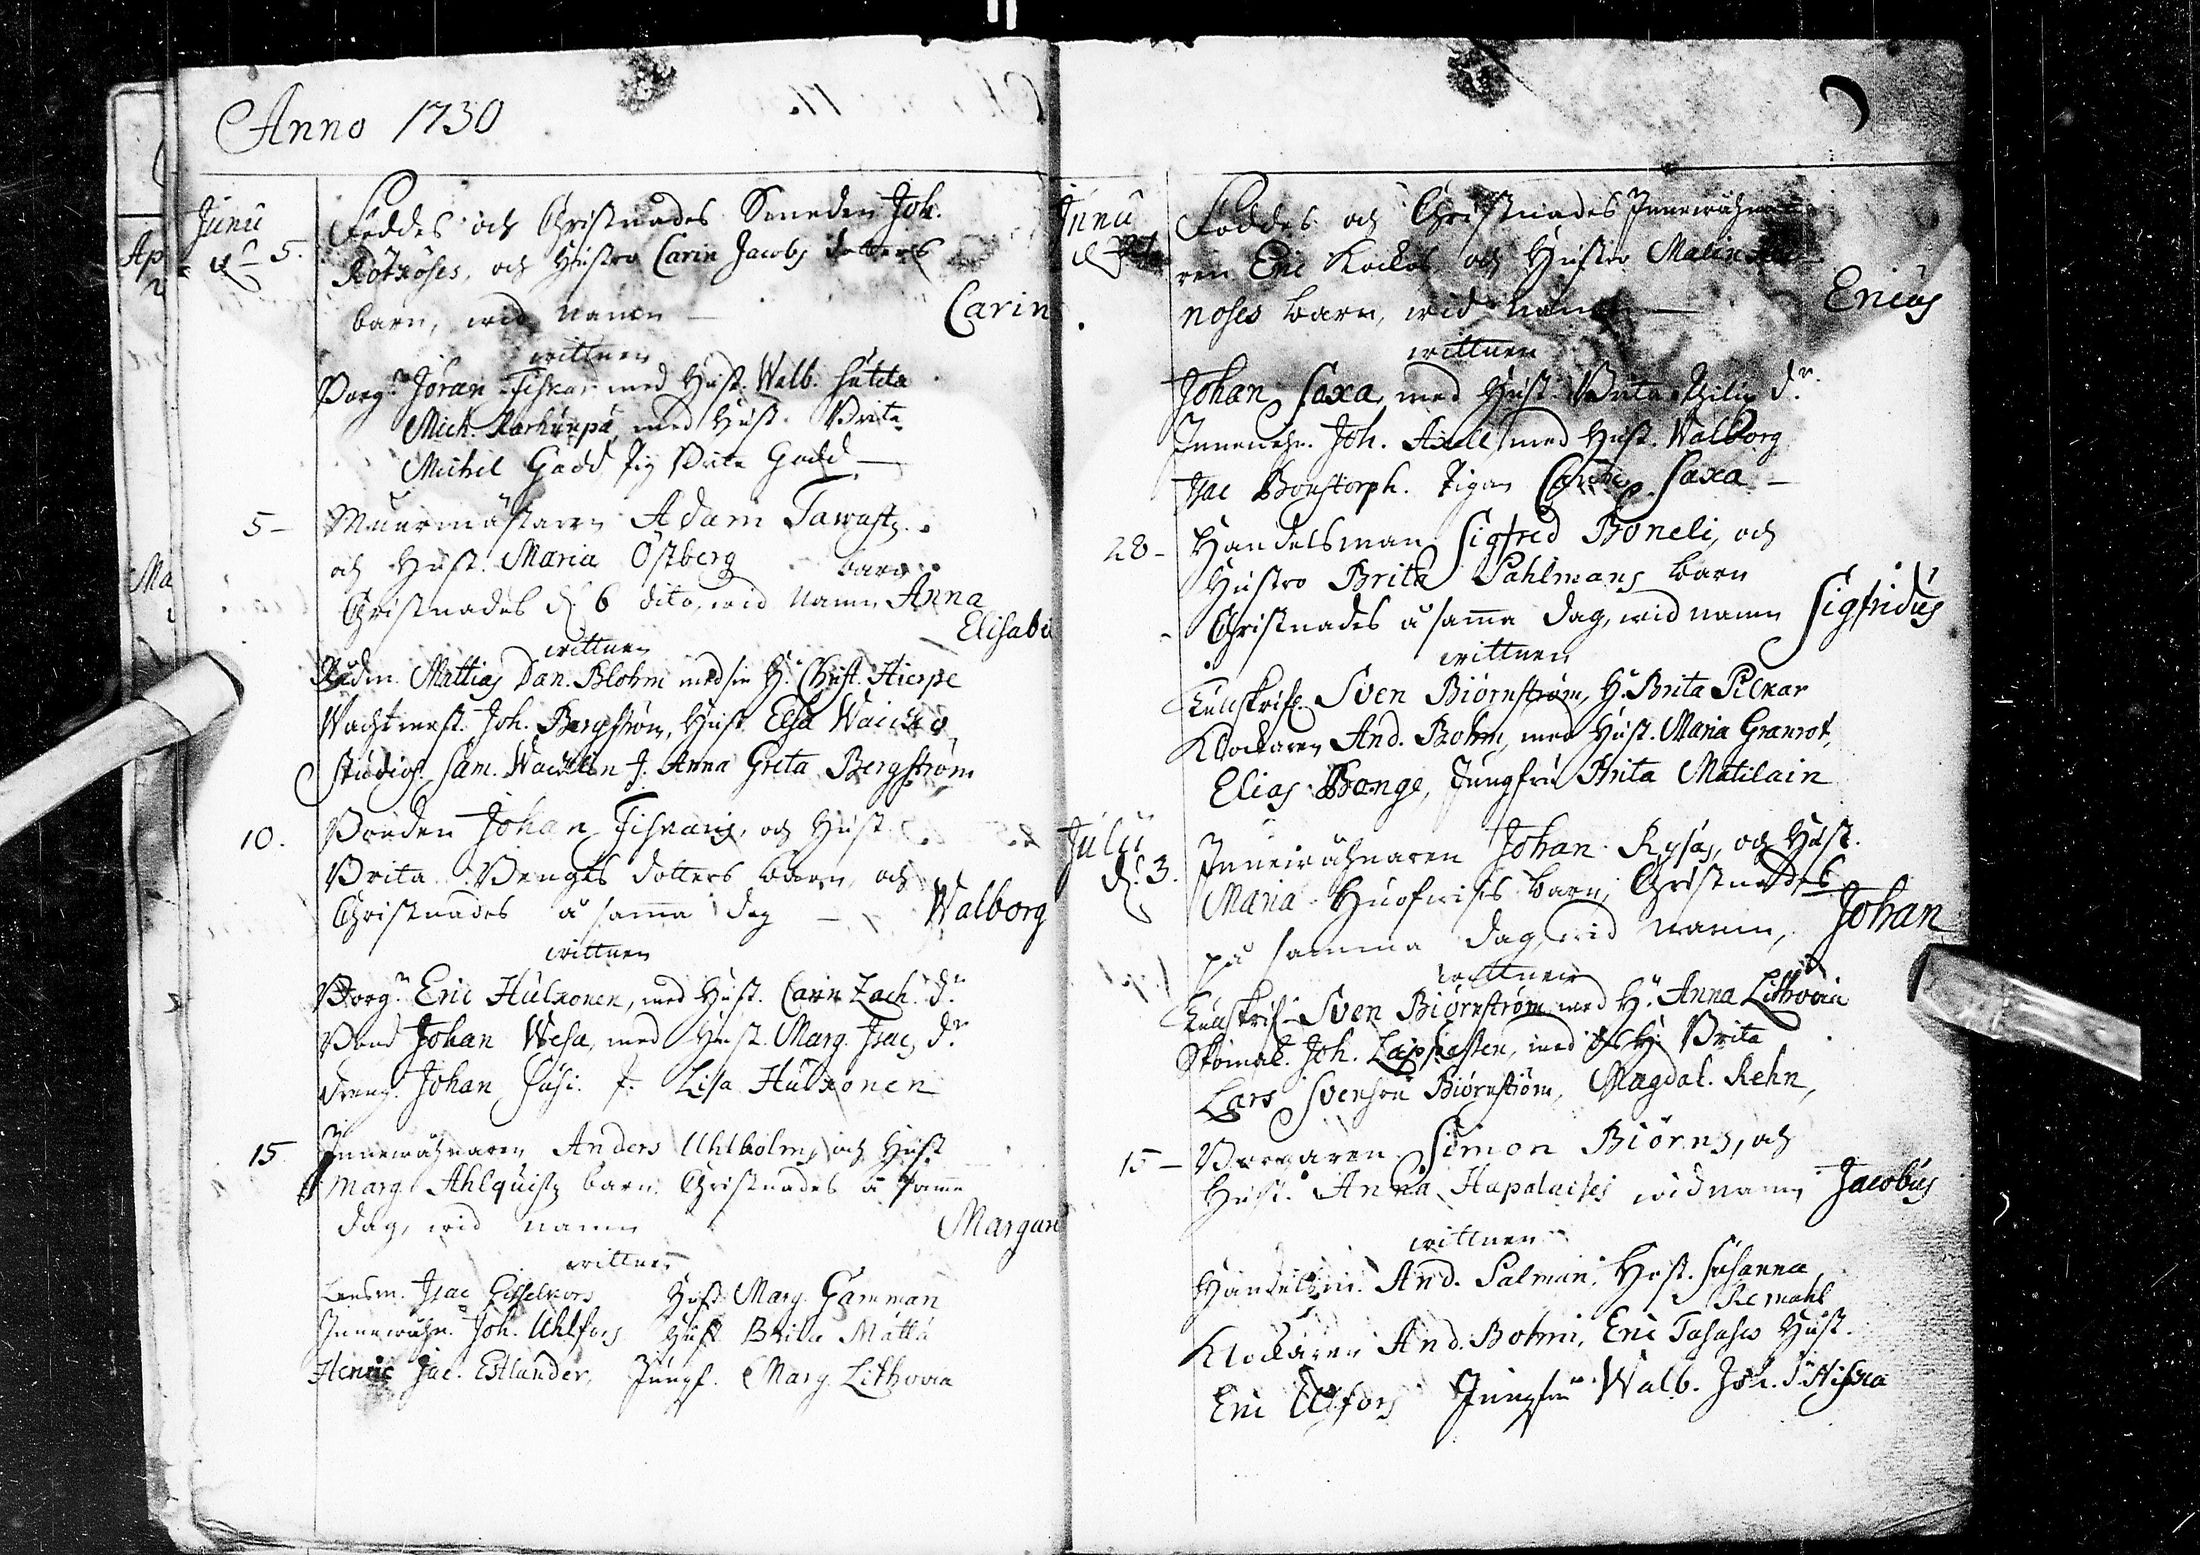 Anno 1730
Junii
d. 5. Föddes och Christnades Smeden Joh.
Rötköses, och Hustro Carin Jacobs dotters
barn, wid namn — Carin
wittnen
Borg.n Jöran Fiskar med Hust. Walb. Hutila
Mich. Karhunpä med Hust. Brita
Michel Gadd Pig Brita Gadd —
5 — Muurmästaren Adam Tawastz
och Hust. Maria Östberg barn
Christnades d. 6 dito, wid namn Anna
Elisabe
wittnen
Rådm. Mattias Dan. Blohm med sin H. Christ. Hierpe
Wachtmest. Joh. Bergström, Hust. Elsa
Studios. Sam. J. Anna Greta Bergström
10. Bonden Johan och Hust.
Brita Bengts dotters barn, och
Christnades å sama dag — Walborg
wittnen
Borg.n Eric Hulkonen, med Hust. Carin Zach. d.r
Bond Johan Wesa, med Hust. Marg. Isacs d.r
dreng. Johan Susi. P. Lisa Hulkonen
15 Innewåhnaren Anders Uhlholms och Hust
Marg. Ahlquistz barn. Christnades å samma
dag, wid namn Margare
wittnen
Lensm. Isac Hust. Marg. Gamman
Innewåhn. Joh. Uhlfors Hust Brita Matta
Henric Jac. Estlander, Jungf. Marg. Lithovia
Junii
Föddes och Christnades Innewåhna
ren Eric Kockos och Hustro Malin
noses barn, wid namn — Ericus
wittnen
Johan Saxa, med Hust. Brita Philip d.r
Innewåhn. Joh. Axell med Hust. Walborg
Isac Bonstorph. Pigan Carin Saxa —
28 - Handelsman Sigfred Boneli, och
Hustro Brita Pahlmans barn
Christnades å sama dag, wid namn Sigfridus
wittnen
Sven Biörnström, H. Brita Pilkar
Klockaren And. Bohm, med Hust. Maria Granrot,
Elias Bange, Jungfru Brita Matilain
Julii
d. 3. Innewåhnaren Johan Rysas, och Hust.
Maria barn, Christnades
på samma dag, wid namn, Johan
wittnen
Sven Biörnström med H. Anna Lithovia
Skomak. Joh. med H. Brita
Lars Svenson Biörnström, Magdal. Rehn,
15 — Borgaren Simon Biörns, och
Hust. Anna Hapalaises wid namn Jacobus
wittnen
Handelsm. And. Salman, Hust. Susanna
Remahl
Klockaren And. Bohm, Eric Hust.
Eric Ulfors Jungfru Walb. Joh. d.r